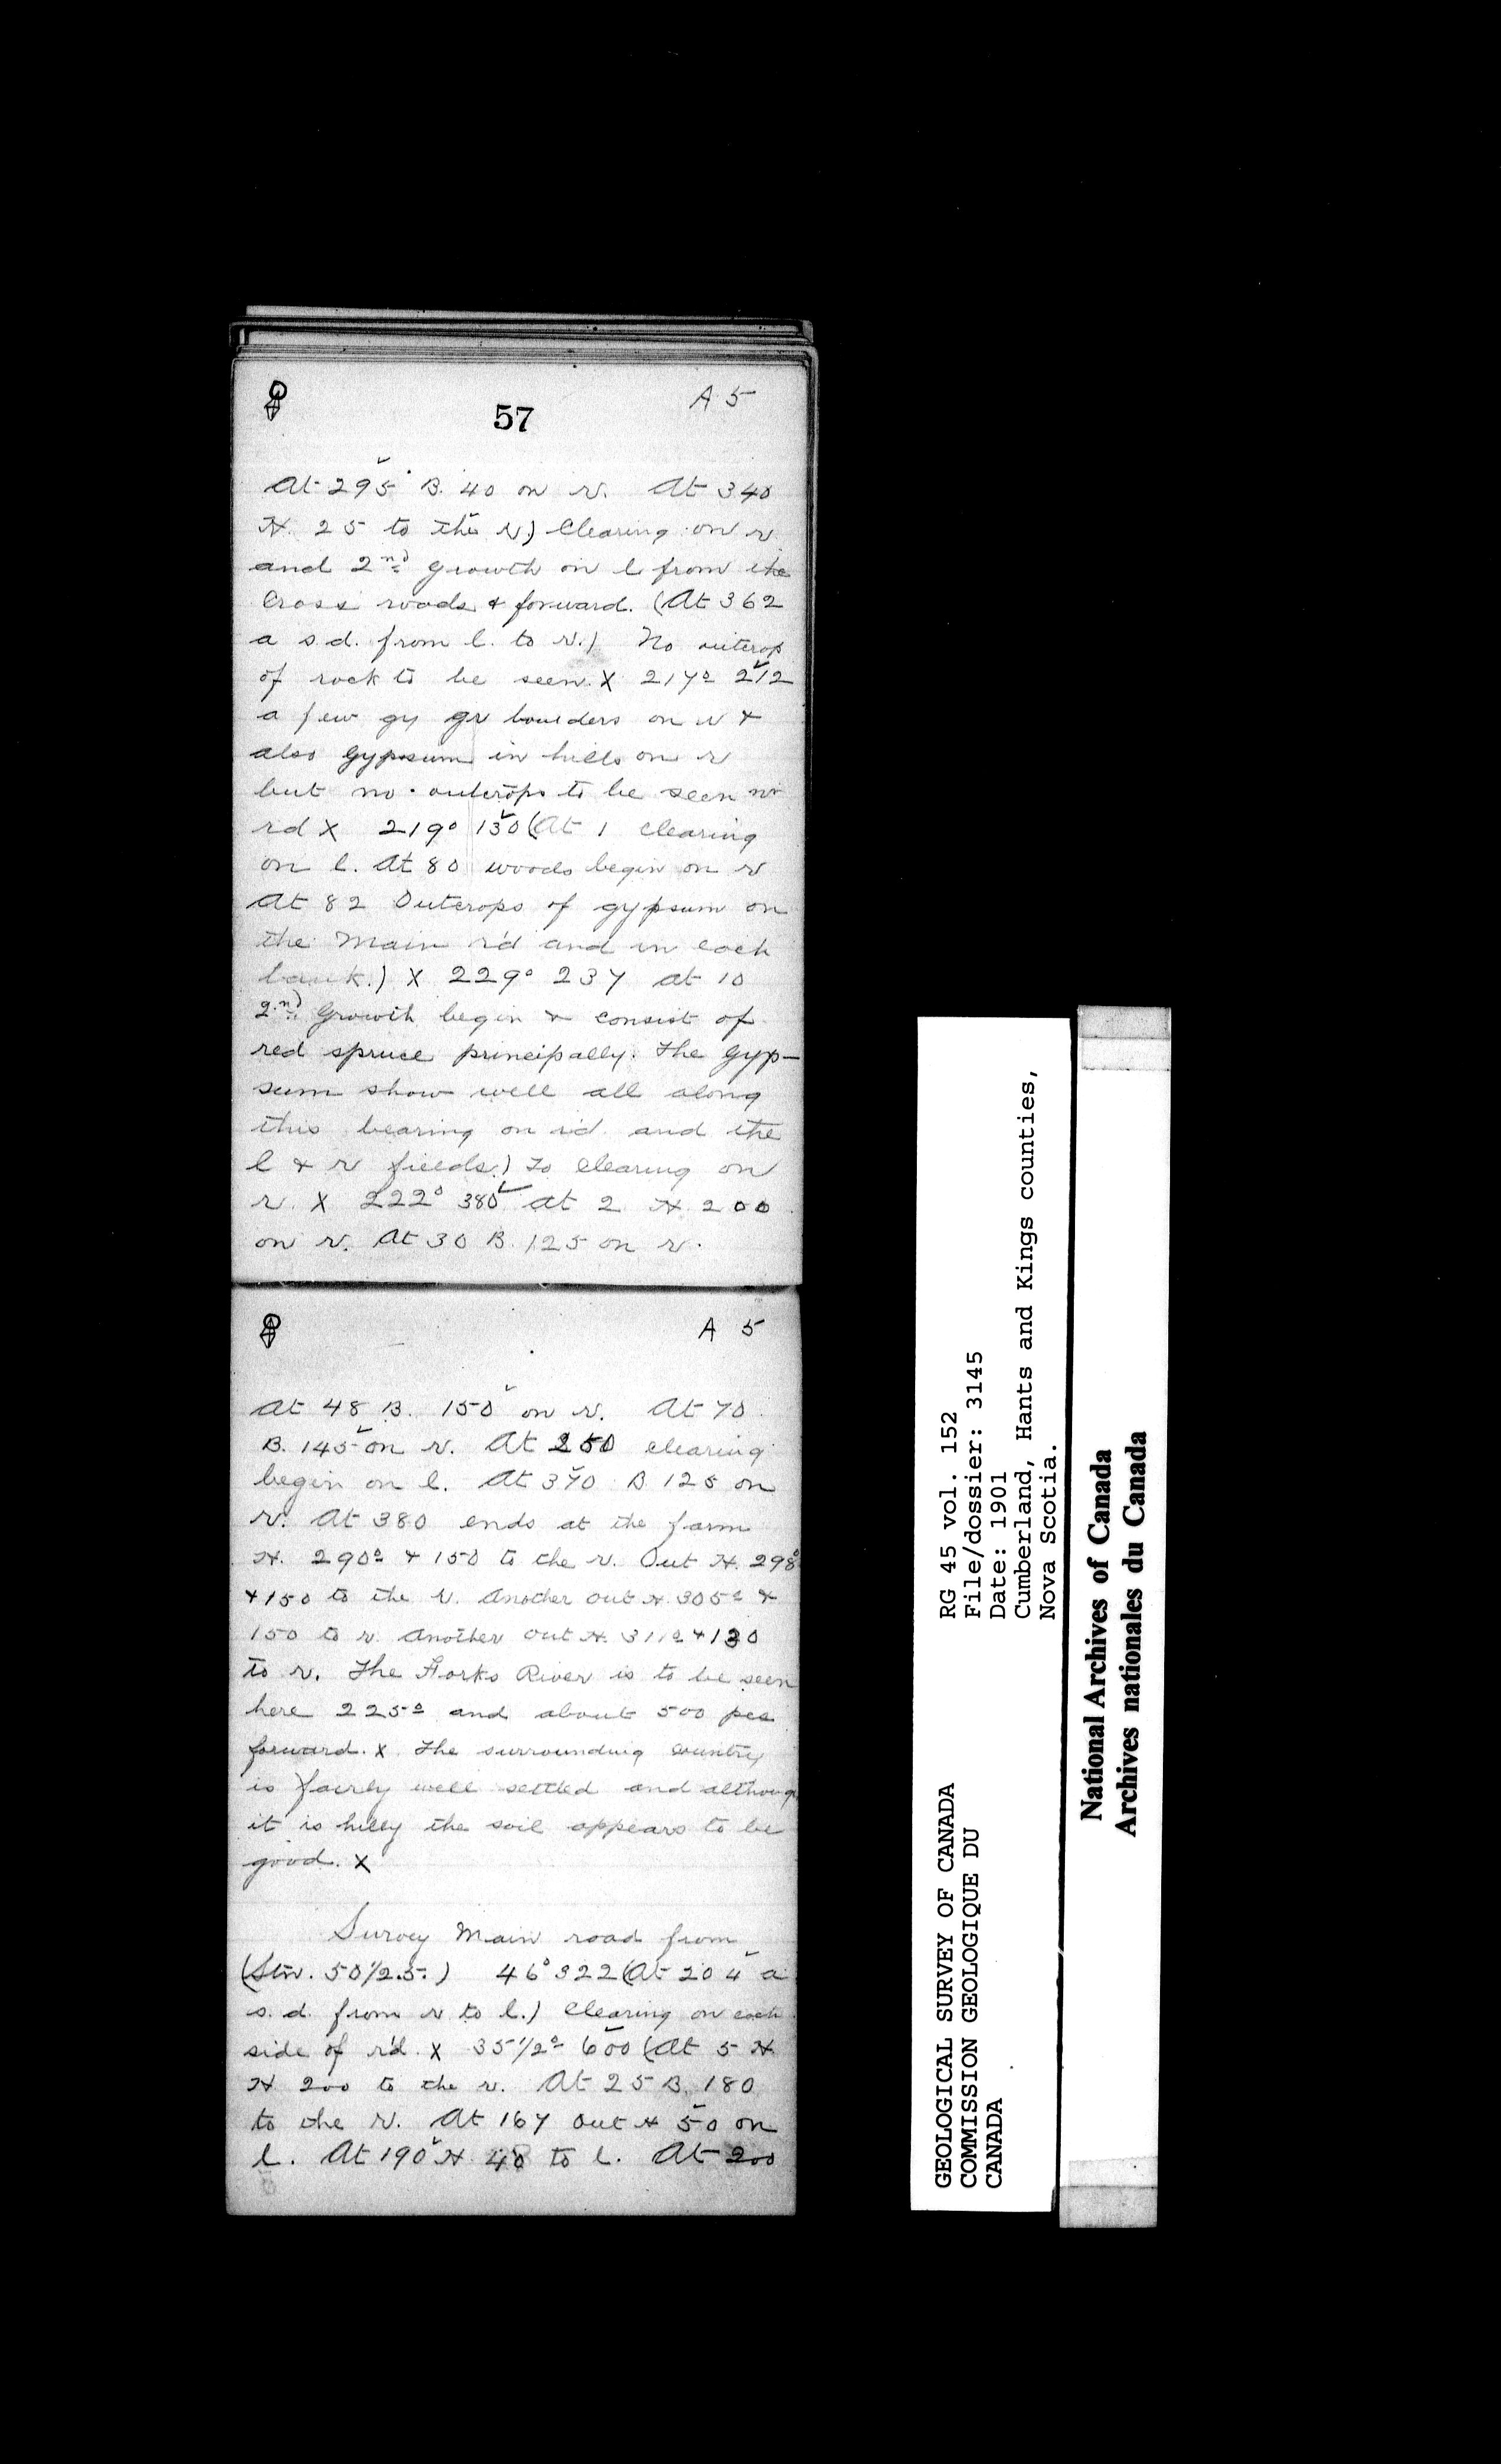 57
A 5
At 295 B. 40 on r. At 340
H. 25 to the r.) Clearing on r
and 2nd growth on l from the
Cross roads & forward. (At 362
a s.d. from l. to r.) No outcrop
of rock to be seen. X 217° 212
a few gy gr boulders on r &
also Gypsum in hills on r
but no outcrops to be seen on
rd X 219° 130 (At 1 clearing
on l. At 80 woods begin on r
At 82 Outcrops of gypsum on
the Main r'd and in each
bank.) X 229° 237 at 10
2nd Growth begin & consist of
red spruce principally. The Gyp-
sum show well all along
this bearing on r'd. and the
l & r fields.) To clearing on
r. X 222° 380 at 2 H. 200
on r. At 30 B. 125 on r.
A 5
At 48 B. 150 on r. At 70
B. 145 on r. At 250 clearing
begin on l. At 370 B 125 on
r. At 380 ends at the farm
H. 290° & 150 to the r. Out H. 298°
& 150 to the r. Another out H. 305° &
150 to r. Another out H. 311° & 130
to r. The Forks River is to be seen
here 225° and about 500 pcs
forward. X The surrounding country
is fairly well settled and although
it is hilly the soil appears to be
good. X
Survey Main road from
(Stn. 50 1/2.5.) 46° 322 (At 204 a
s.d. from r to l.) Clearing on each
side of r'd. X 35 1/2° 600 (At 5 H
H 200 to the r. At 25 B. 180
to the r. At 167 Out H 50 on
l. At 190 H 40 to l. At 200
GEOLOGICAL SURVEY OF CANADA
COMMISSION GEOLOGIQUE DU
CANADA
RG 45 vol. 152
File/dossier: 3145
Date: 1901
Cumberland, Hants and Kings counties,
Nova Scotia.
National Archives of Canada
Archives nationales du Canada